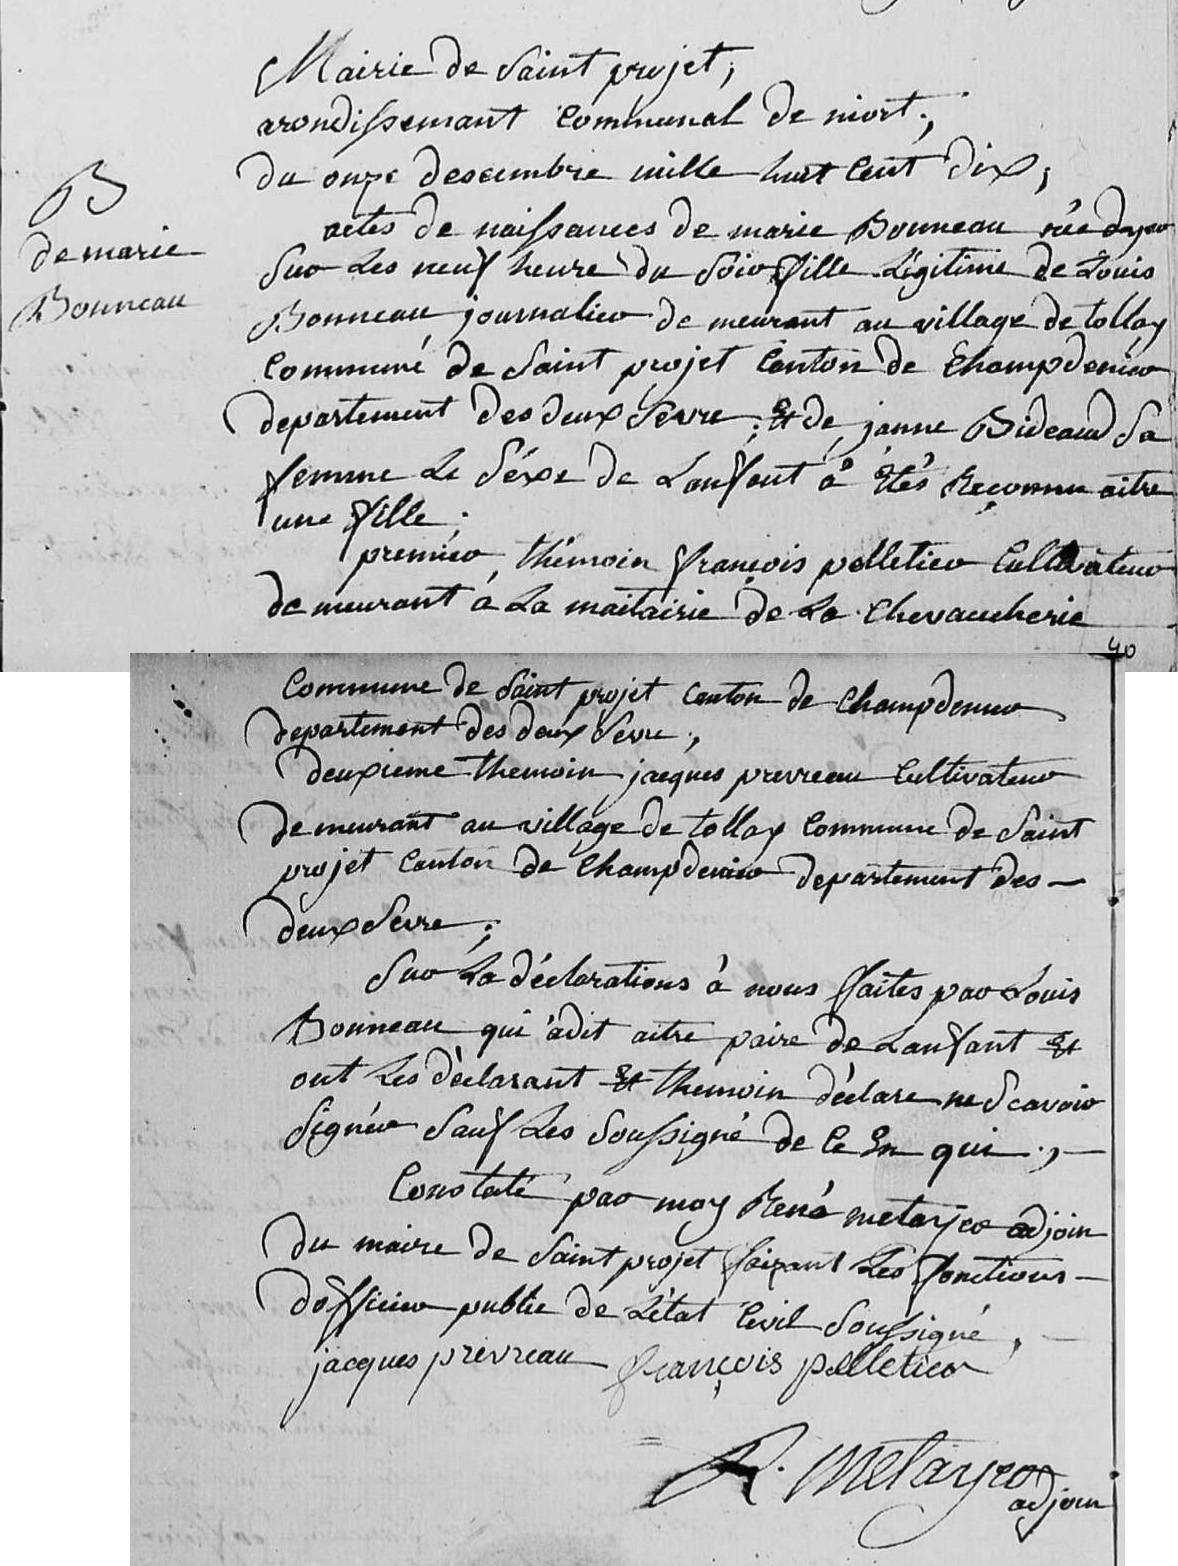 Mairie de Saint projet,
arondissemant Communal de niort,
du onze desecimbre mille huit Cent dix,
B
de marie
Bonneau
actes de naissances de marie Bonneau née dyer
Sur Les neuf heure du Soir fille Légitime de Louis
Bonneau journalier de meurant au village de tollay
Communé de Saint projet Canton de Champdenier
departement des deux Sevre, Et de janne Bideaud Sa
femme Le Séxe de Lanfant à Etés Reconnu aitre
une fille.
premier thémoin françois pelletier Cultivateur
de meurant á La maitairie de La Chevaucherie
40
Commune de Saint projet Canton de Champdenier
departement des deux Sevre,
deuxieme themoin jacques prevreau Cultivateur
de meurant au village de tollay Commune de Saint
projet Canton de Champdenier departement des
deux Sevre,
Sur La déclarations à nous faites par Louis
Bonneau qui àdit aitre paire de Lanfant Et
ont Les déclarant Et themoin déclare ne Scavoir
Signér Sauf Les Soussigné de Ce En qui,
Constaté par moy René metayer adjoin
du maire de Saint projet faizant Les fonctions
dofficier public de L'état Civil Soussigné,
jacques prevreau françois pelletier
R. Metayer
adjoin